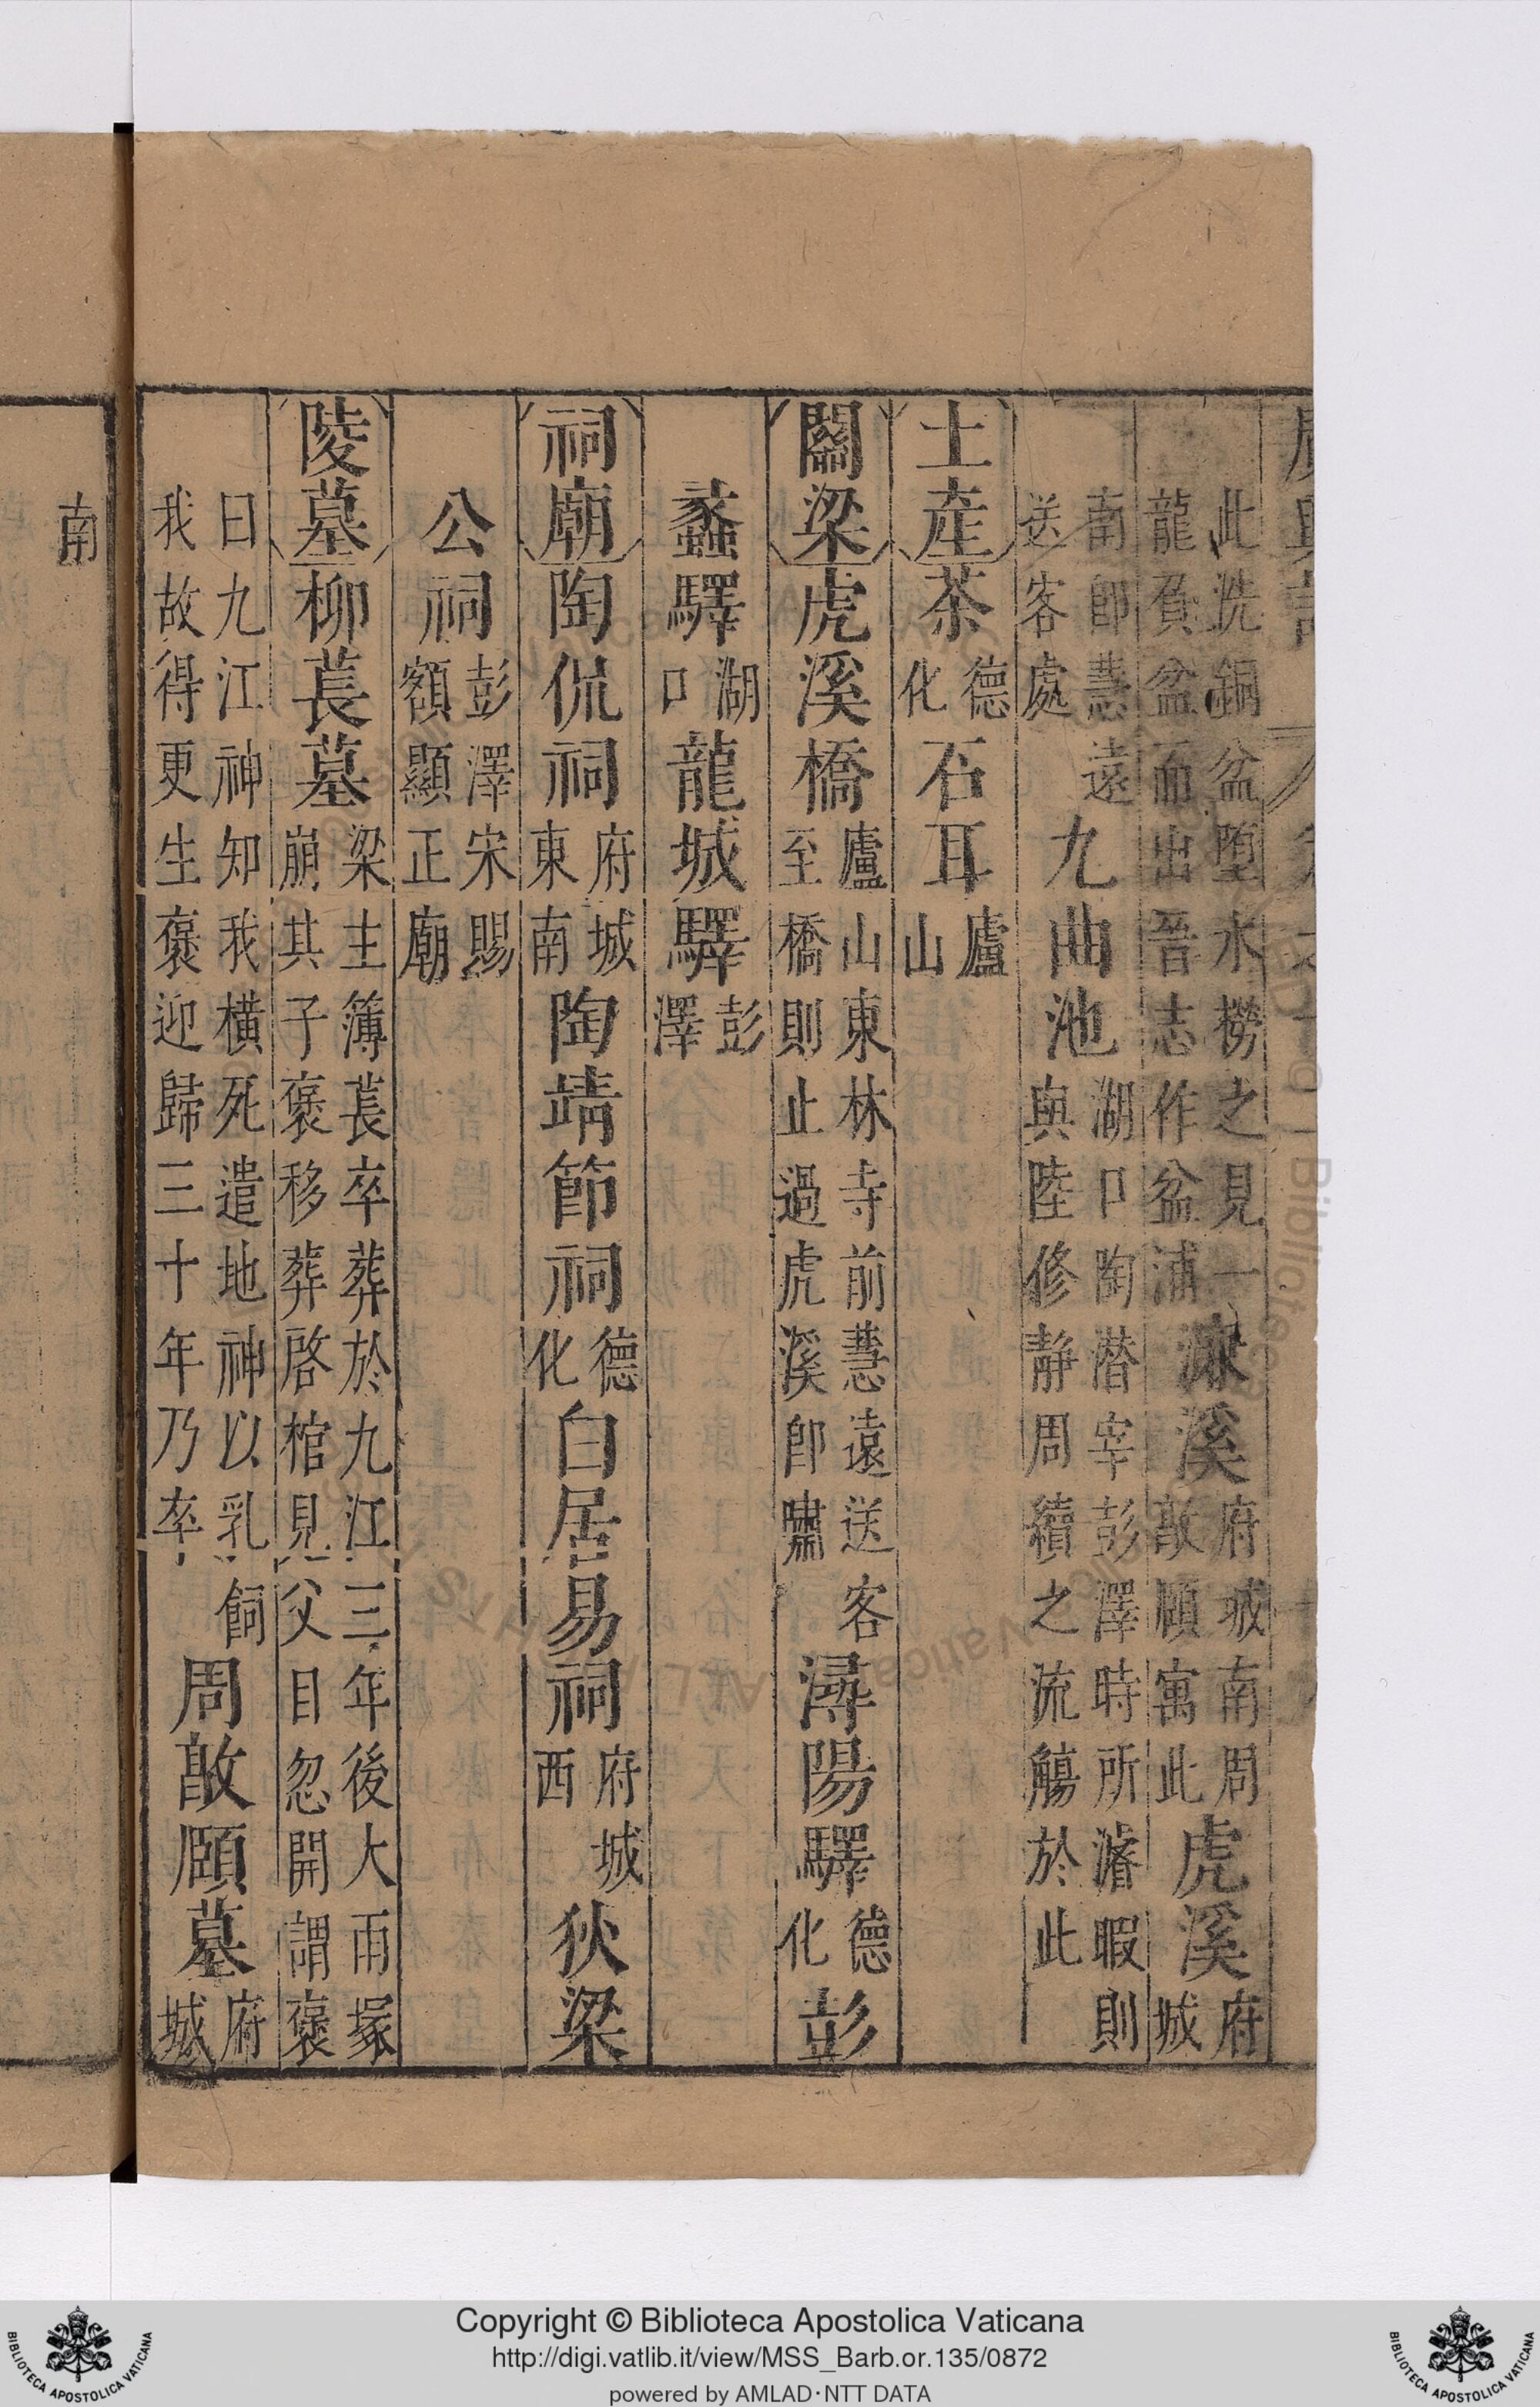 廣輿記
此洗銅盆堕水撈之見一
龍負盆而出晉志作盆浦
濂溪
府城南周
敦頤寓此
虎溪
府
城
南即慧遠
送客處
九曲池
湖口陶潜宰彭澤時所濬暇則
與陸修静周續之流觴於此
土産
茶
德
化
石耳
廬
山
關梁
虎溪橋
廬山東林寺前慧遠送客
至橋則止過虎溪即嘯
潯陽驛
德
化
彭
蠡驛
湖
口
龍城驛
彭
澤
祠廟
陶侃祠
府城
東南
陶靖節祠
德
化
白居易祠
府城
西
狄梁
公祠
彭澤宋賜
額顯正廟
陵墓
柳萇墓
梁主簿萇卒葬於九江三年後大雨塚
崩其子褒移葬啓棺見父目忽開謂褒
曰九江神知我横死遣地神以乳飼
我故得更生褒迎歸三十年乃卒
周敦頤墓
府
城
南
Copyright © Biblioteca Apostolica Vaticana
http://digi.vatlib.it/view/MSS_Barb.or.135/0872
powered by AMLAD·NTT DATA
BIBLIOTECA APOSTOLICA VATICANA
BIBLIOTECA APOSTOLICA VATICANA